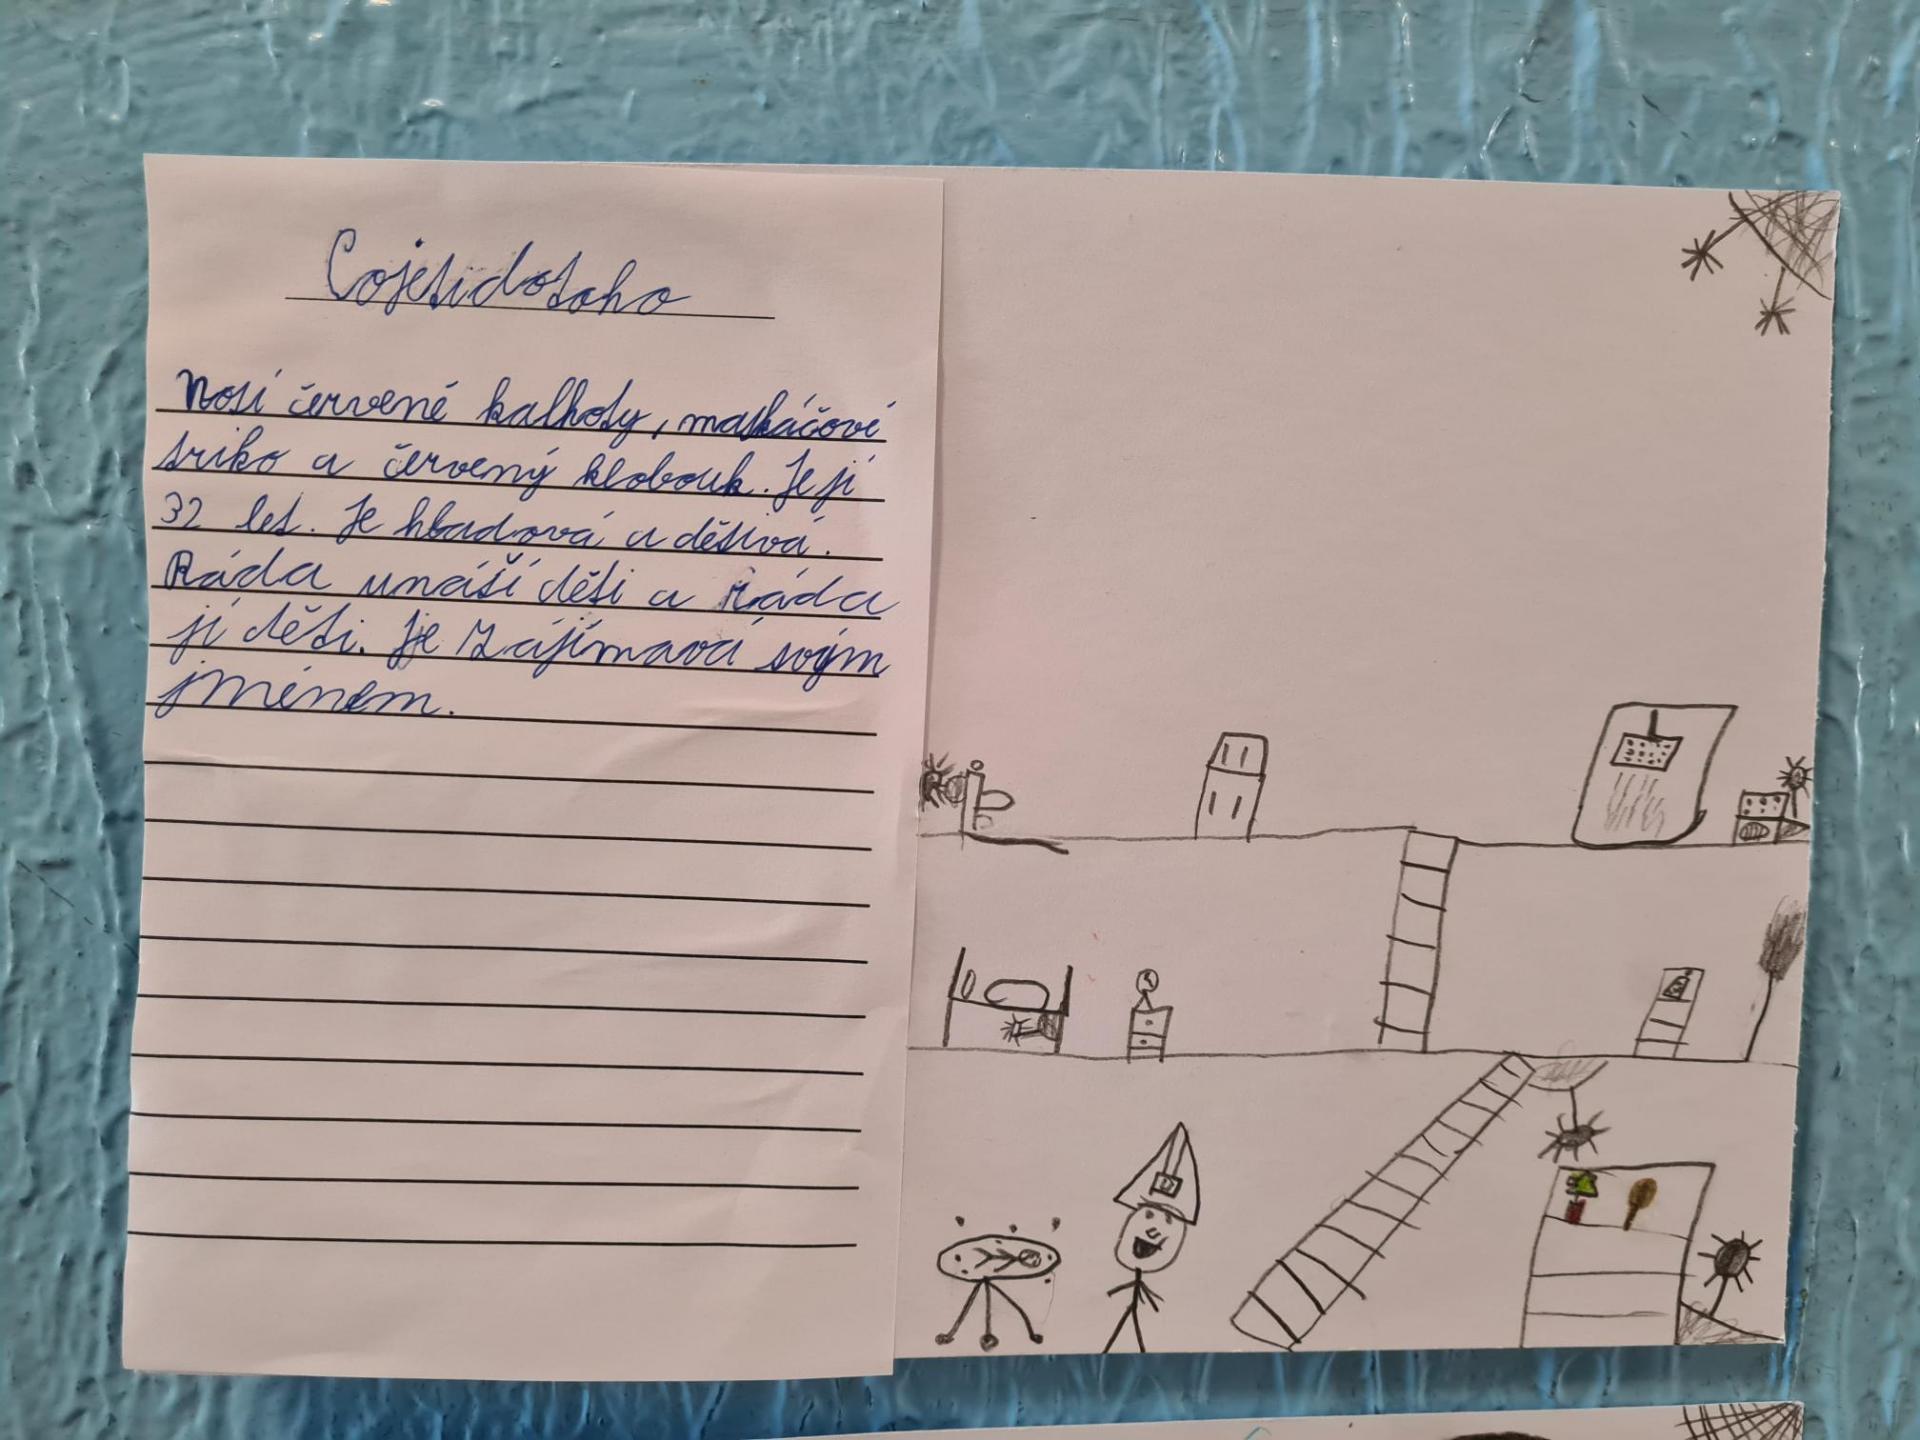 Cojetidotoho
Nosí červené kalhoty, maskáčové
triko a červený klobouk. Je jí
32 let. Je hladová a dětivá.
Ráda unáší děti a ráda
jí děti. Je zajímavá svým
jménem.